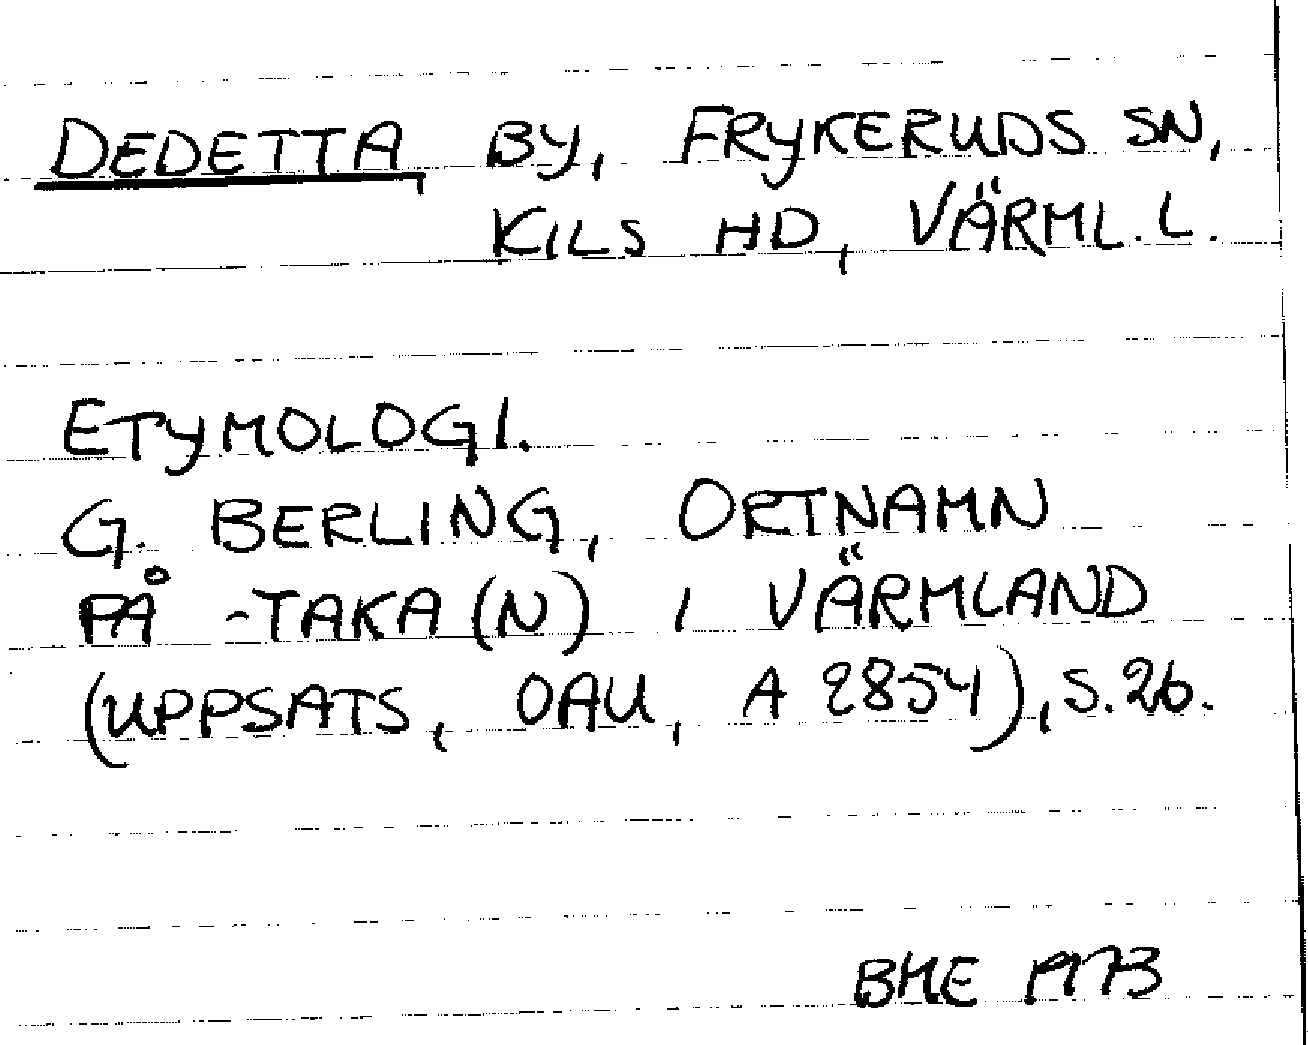 DEDETTA, BY, FRYKERUDS SN,
KILS HD, VÄRML. L.
ETYMOLOGI.
G. BERLING, ORTNAMN
PÅ -TAKA(N) I VÄRMLAND
(UPPSATS, OAU, A 2854), S. 26.
BME 1973